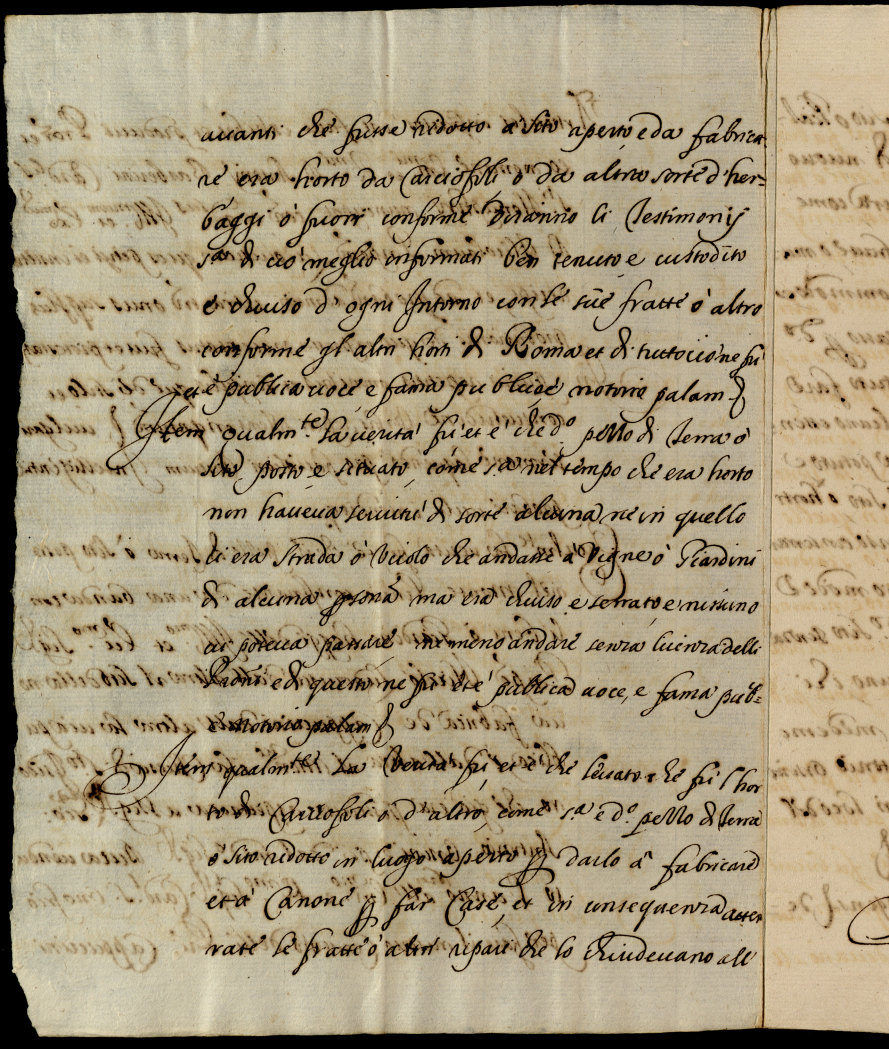 auanti che fusse ridotto à sito aperto e da fabrica-
re era horto da Carciofoli, ò da altra sorte d'her-
baggi ò fuori conforme diranno li Testimonij
s.ª di ciò meglio informati ben tenuto e custodito
e chiuso d'ogni Intorno con le sue fratte ò altro
conforme gl'altri horti di Roma et di tutto ciò ne fù
et è publica uoce e fama publice notorie palam
Item qualm.te la uerità fù et è che d.º pezzo di Terra ò
sito posto e situato, come s.ª nel tempo che era horto
non haueua seruitù di sorte alcuna ne in quello
ci era strada ò Vicolo che andasse à Vigne ò Giardini
di alcuna psona ma era chiuso e serrato e nissuno
ci poteua passare ne meno andare senza licenza delli
Pròni e di questo ne fù et è publica uoce, e fama pub-
e notorio palam
Item qualm.te La Verità fù et è che leuato che fù l'hor
to di Carciofoli ò d'altro, come s.ª e d.º pezzo di Terra
ò sito ridotto in luogo aperto p darlo à fabricare
et à Canone p far Case, et in consequenza atter
rate le fratte ò altri ripari che lo chiudeuano all'